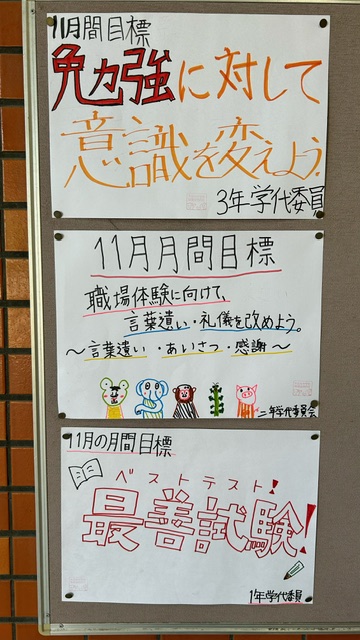 11月間目標
勉強に対して
意識を変えよう。
3年学代委員
11月月間目標
職場体験に向けて、
言葉遣い・礼儀を改めよう。
～言葉遣い・あいさつ・感謝～
二年学代委員会
11月の月間目標
ベストテスト!
最善試験!
1年学代委員